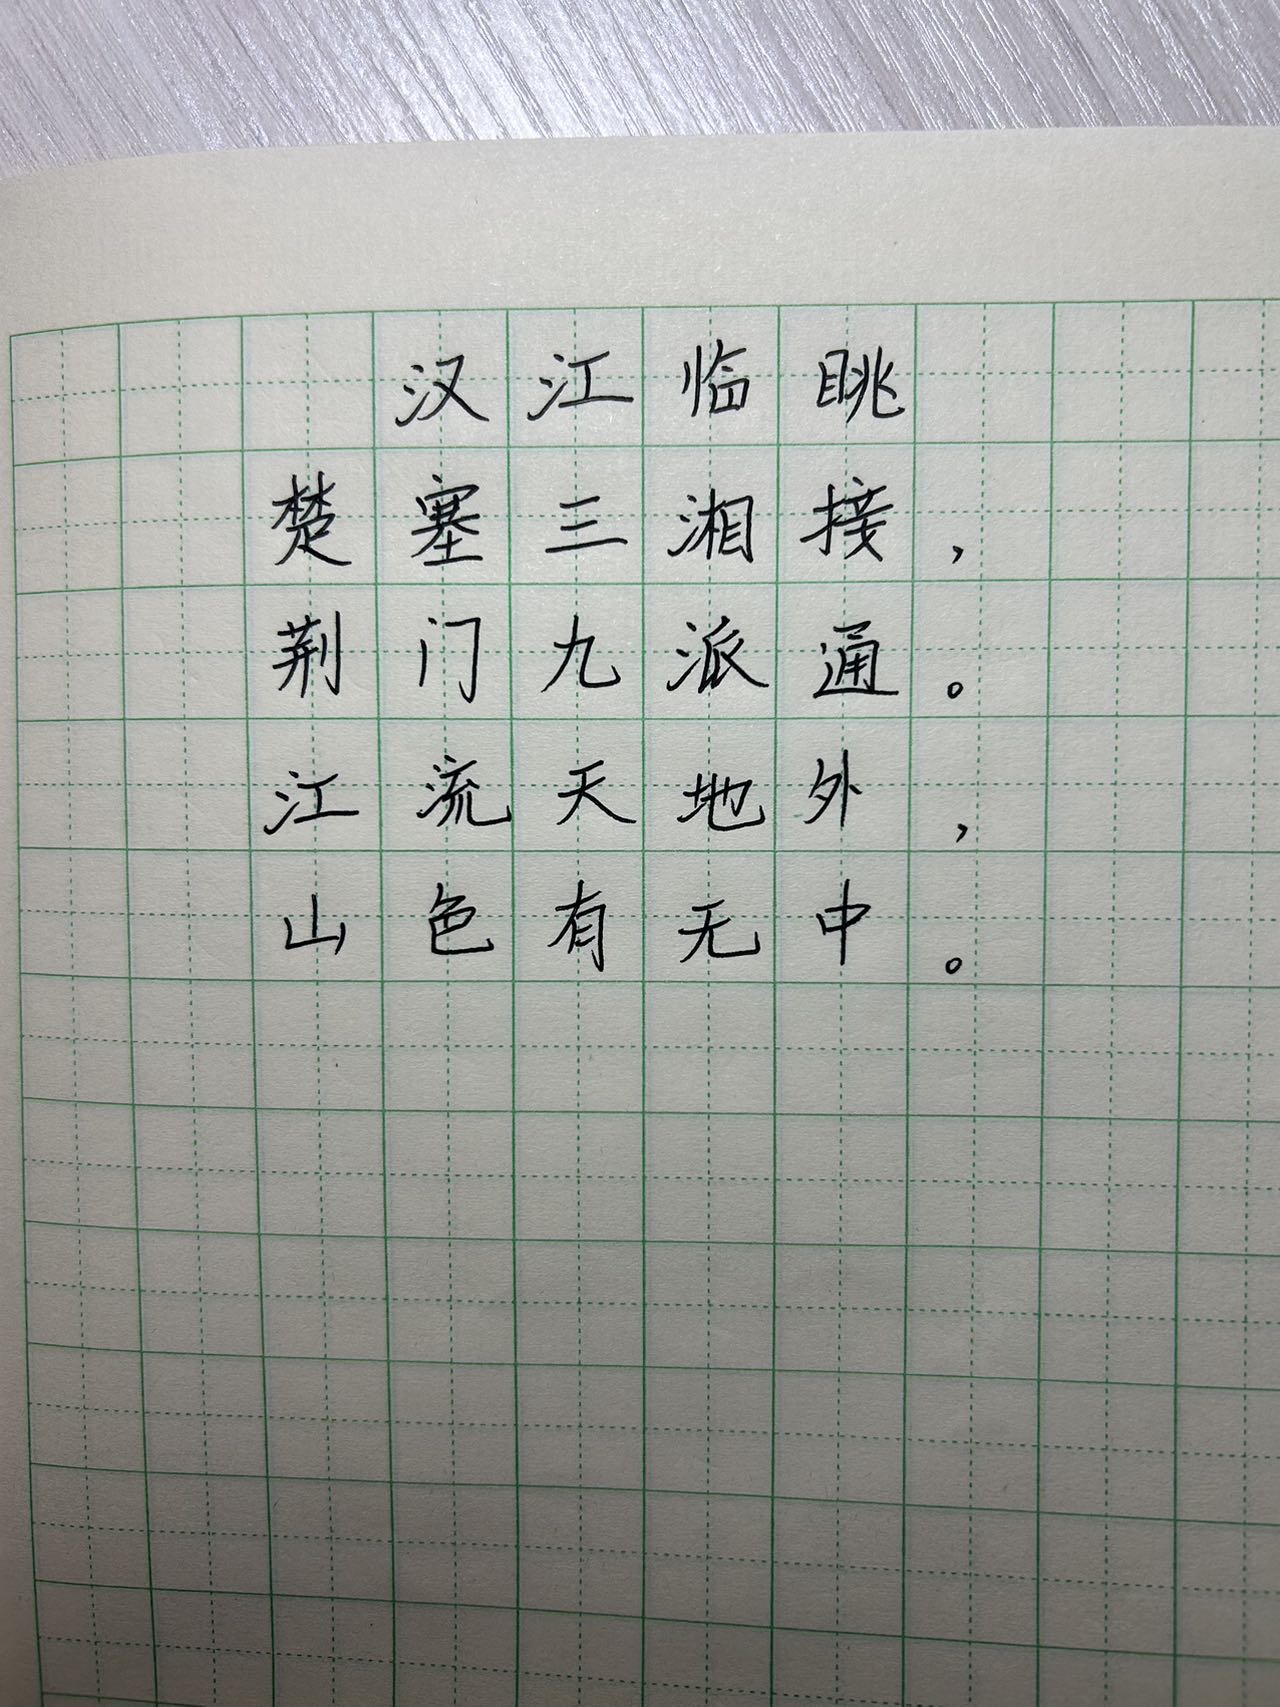 汉江临眺
楚塞三湘接，
荆门九派通。
江流天地外，
山色有无中。